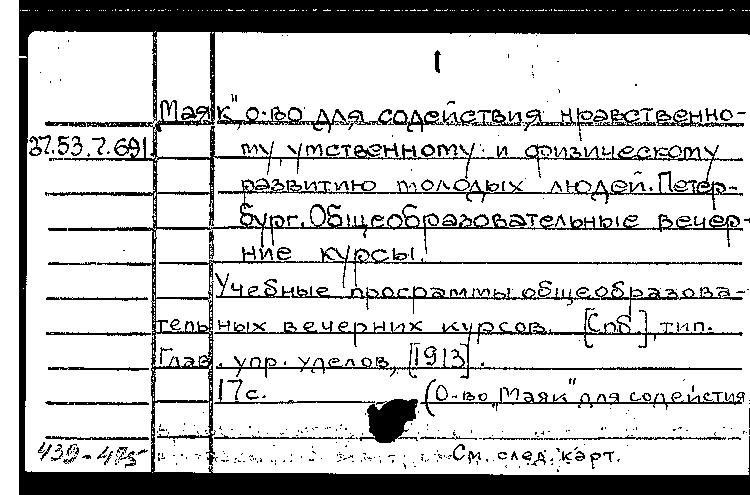 1
Маяк", о-во для содействия нравственно-
37.53.7.691. му, умственному и физическому
развитию молодых людей. Петер-
бург. Общеобразовательные вечер-
ние курсы.
Учебные программы общеобразова-
тельных вечерних курсов. [Спб.], тип.
Глав. упр. уделов, [1913].
17с. (О-во „Маяк" для содействия
439-475 См. след. карт.